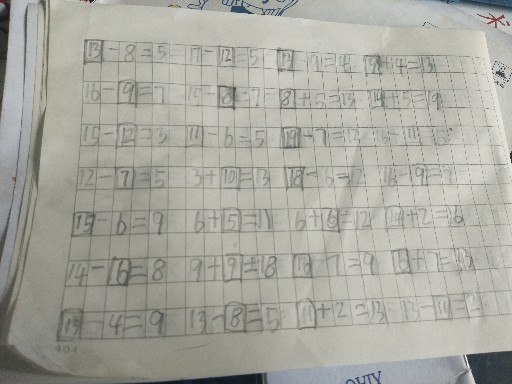 13-8=5 17-12=5 13 =4 14=18
16-9=7 15-8=7 8+5=13 14+5=19
15-12=3 11-6=5 19-7=12
12-7=5 3+10=13 18-6=12 16-9=7
15-6=9 6+5=11 6+6=12 14+2=16
14-6=8 9+9=18 16-7=9 6+7=13
13-4=9 13-8=5 11+2=13 13-11=2